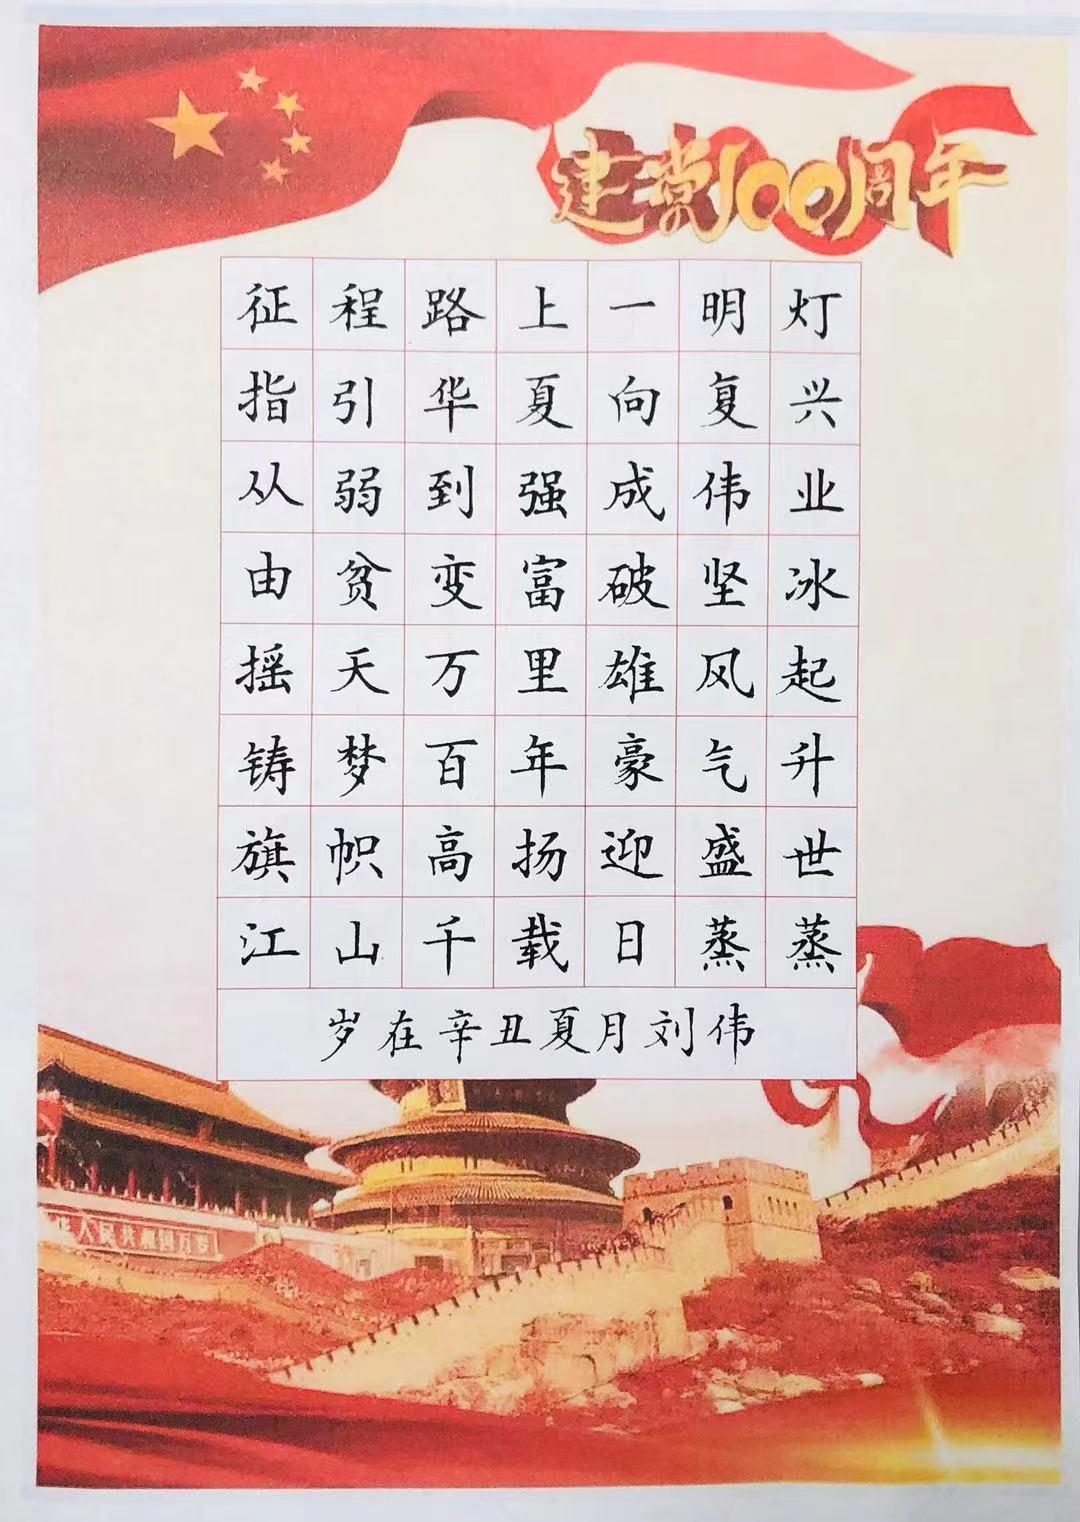 建党100周年
征程路上一明灯
指引华夏向复兴
从弱到强成伟业
由贫变富破坚冰
摇天万里雄风起
铸梦百年豪气升
旗帜高扬迎盛世
江山千载日蒸蒸
岁在辛丑夏月刘伟
人民共和国万岁